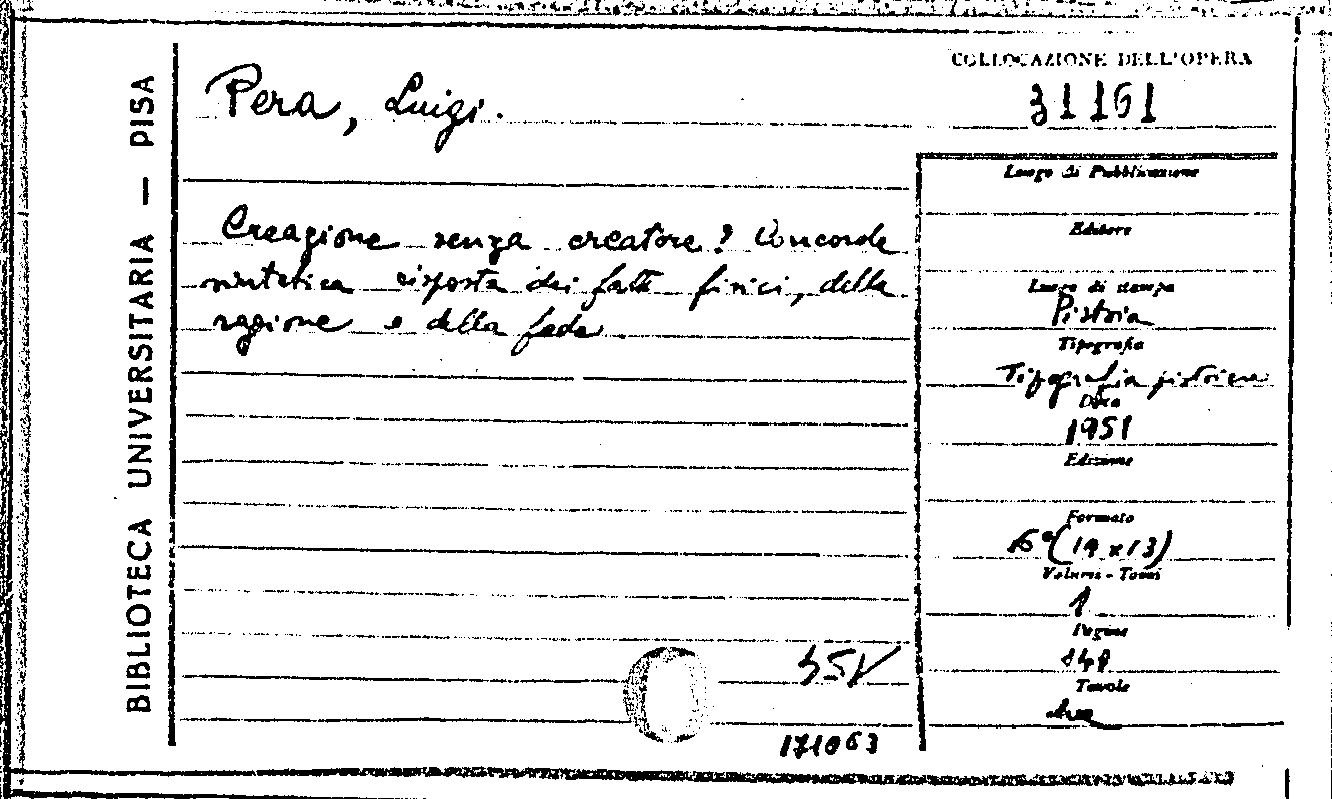 BIBLIOTECA UNIVERSITARIA — PISA
Pera, Luigi.
Creazione senza creatore? Concorde
sintetica risposta dei fatti fisici, della
ragione e della fede
171063
COLLOCAZIONE DELL'OPERA
31161
Luogo di Pubblicazione
Editore
Luogo di stampa
Pistoia
Tipografia
Tipografia pistoiese
Data
1951
Edizione
Formato
16° (19 x 13)
Volumi - Tomi
1
Pagine
148
Tavole